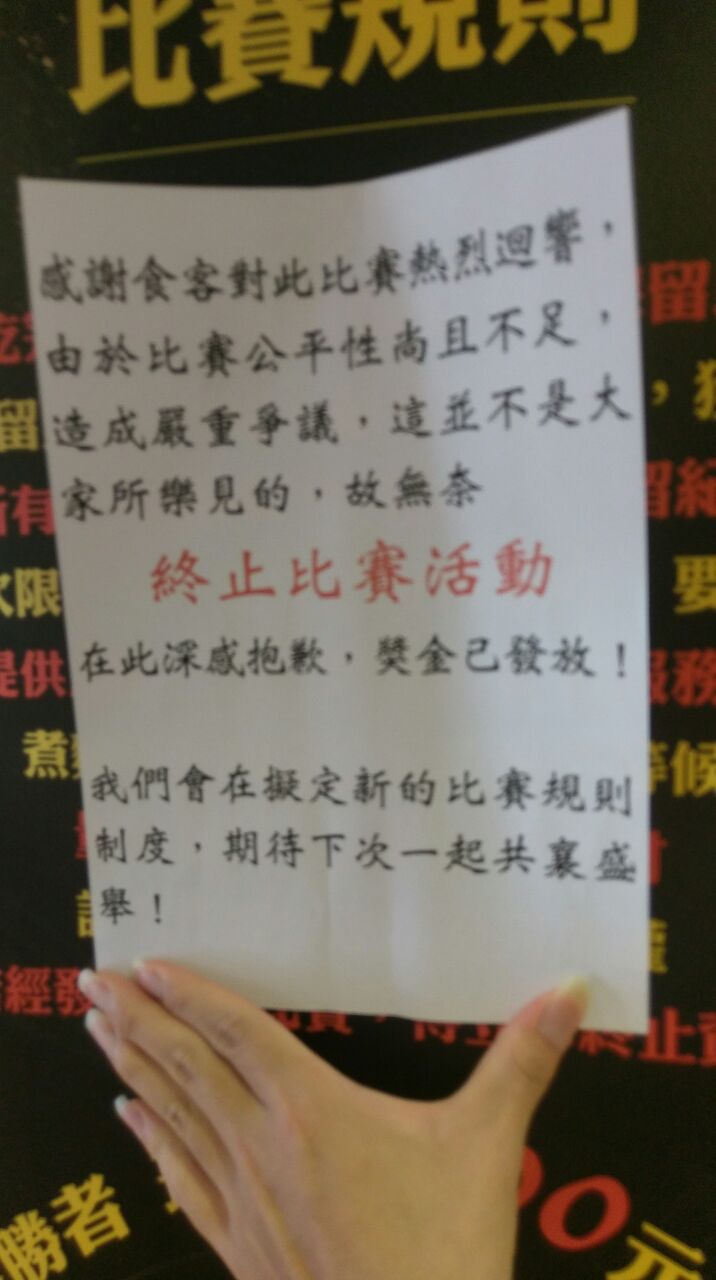 比賽規則
感謝食客對此比賽熱烈迴響，
由於比賽公平性尚且不足，
造成嚴重爭議，這並不是大
家所樂見的，故無奈
終止比賽活動
在此深感抱歉，獎金已發放！
我們會在擬定新的比賽規則
制度，期待下次一起共襄盛
舉！
留
留
，
所有
留
限
要
提供
服務
煮
等候
經發
終止
勝者
00元